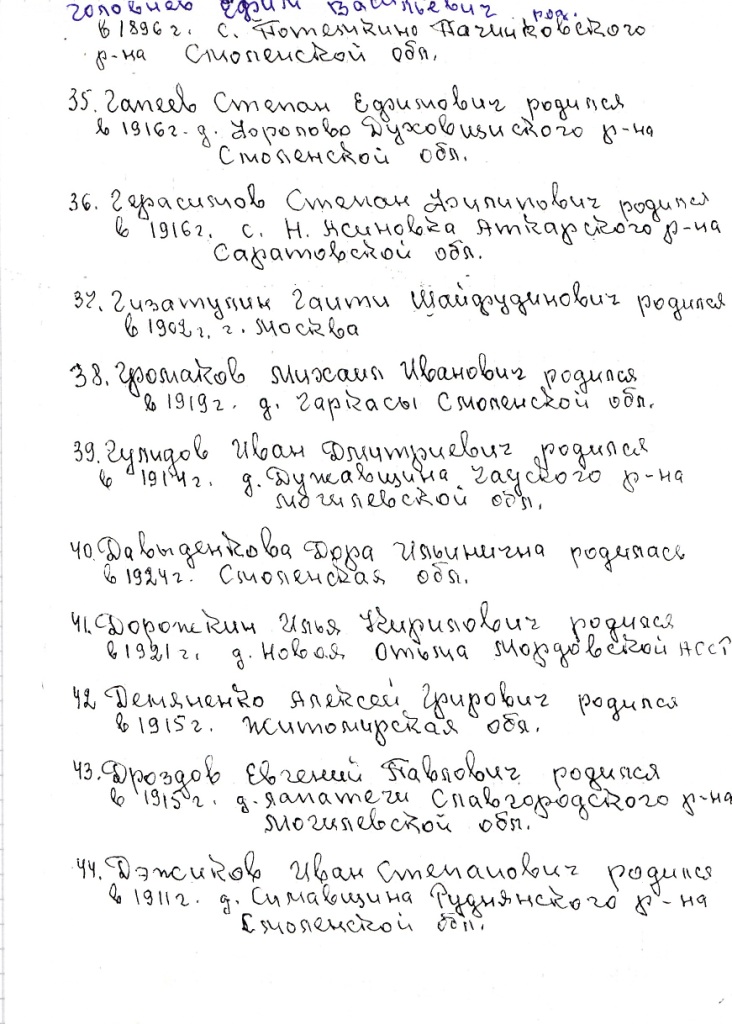 Головнев Ефим Васильевич род.
в 1896 г. с. Потемкино Пачинковского
р-на Смоленской обл.
35. Гапеев Степан Ефимович родился
в 1916 г. д. Королово Духовщиского р-на
Смоленской обл.
36. Герасимов Степан Филипович родился
в 1916 г. с. Н. Ясиновка Аткарского р-на
Саратовской обл.
37. Гизатулин Гаити Шайфудинович родился
в 1902 г. г. Москва
38. Громаков Михаил Иванович родился
в 1919 г. д. Гаркасы Смоленской обл.
39. Гулидов Иван Дмитриевич родился
в 1914 г. д. Дужавщина Чауского р-на
Могилевской обл.
40. Давыденкова Дора Ильинична родилась
в 1924 г. Смоленская обл.
41. Дорожкин Илья Кирилович родился
в 1921 г. д. Новая Отьма Мордовской АССР
42 Демяненко Алексей Грирович родился
в 1915 г. Житомирская обл.
43. Дроздов Евгений Павлович родился
в 1915 г. д. Лапатечи Славгородского р-на
Могилевской обл.
44. Дэжиков Иван Степанович родился
в 1911 г. д. Симавщина Руднянского р-на
Смоленской обл.